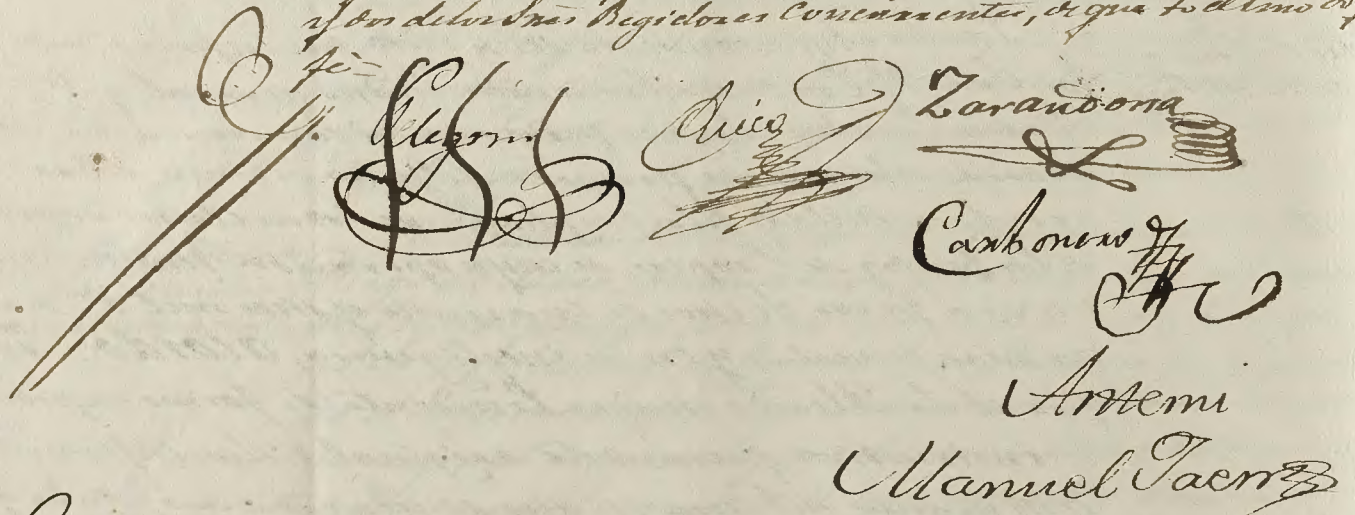 y dos de los Sres Regidores Concurrentes, de que Yo el Smo doy
fé =
Pelegrin Chico Zarandona
Carbonero
Antemi
Manuel Jaen